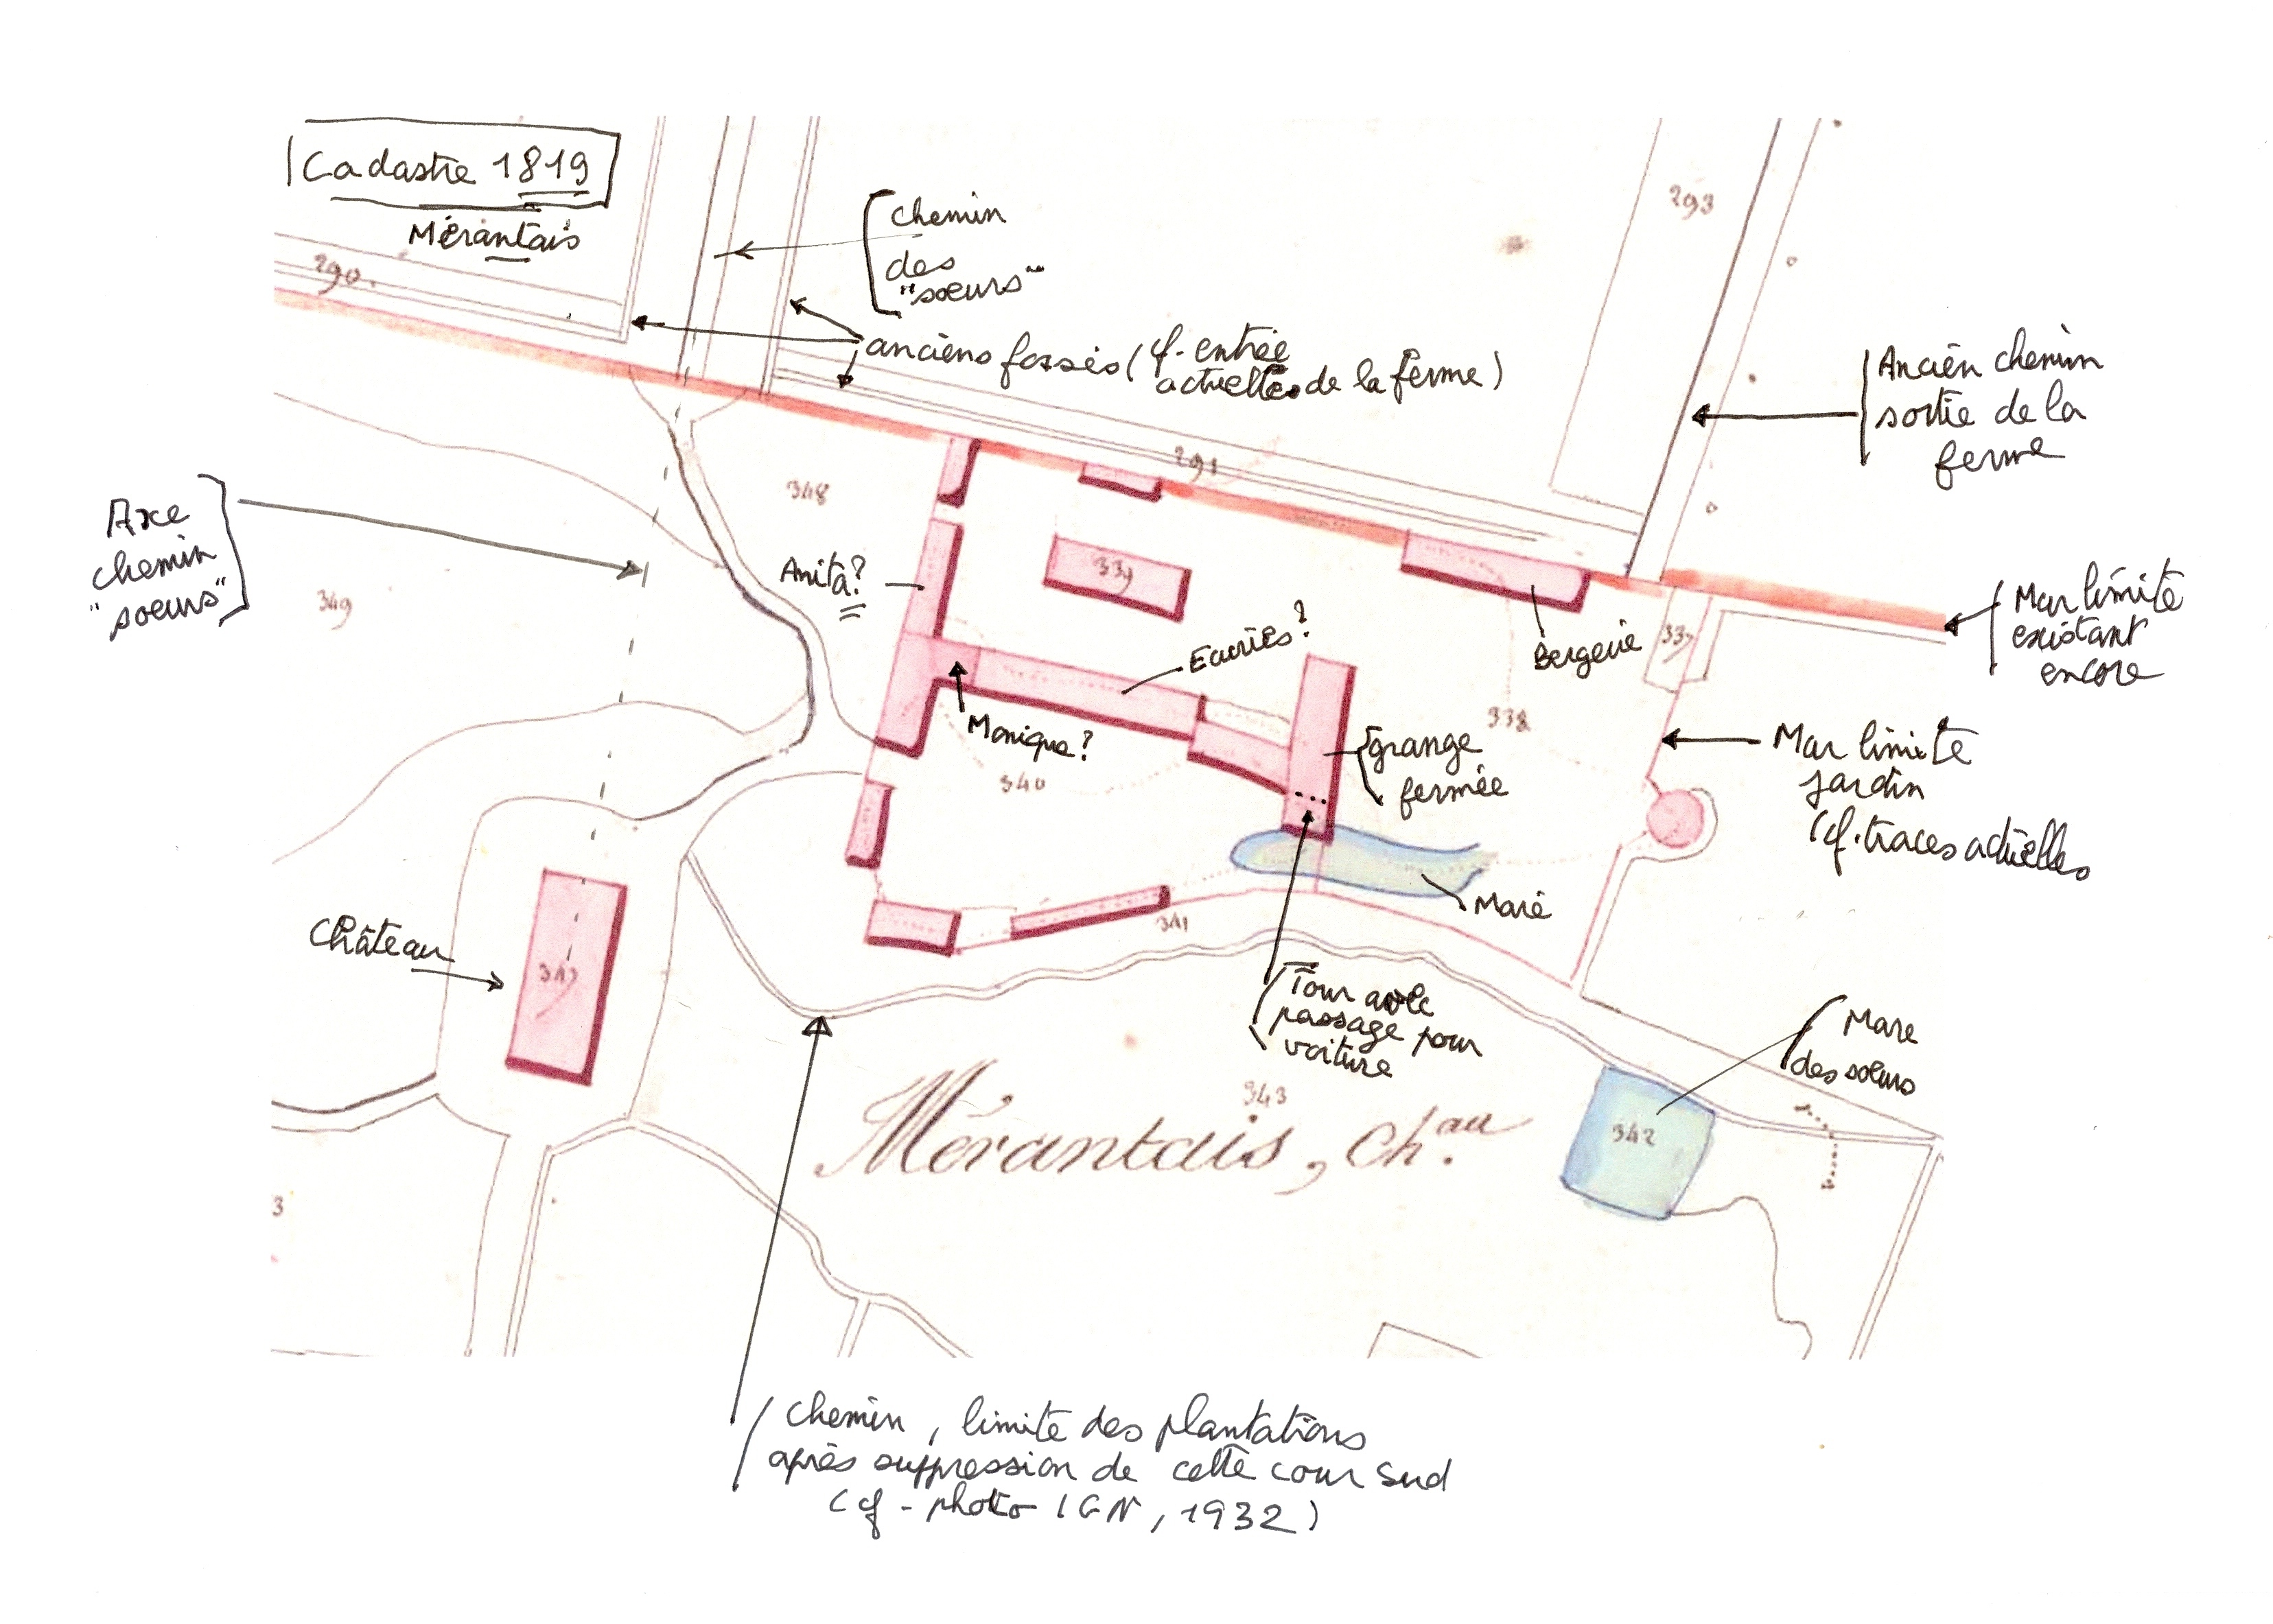 Cadastre 1819
Mérantais
290.
chemin
des
"soeurs"
anciens fossés (cf. entrée
actuelles de la ferme)
293
Ancien chemin
sortie de la
ferme
291
348
Axe
chemin
"soeurs"
349
Anita?
339
Ecuries?
Bergerie
337
Mur limite
existant
encore
Monique?
340
grange
fermée
338
Mur limite
jardin
(cf. traces actuelles
Château
341
Mare
Tour avec
passage pour
voiture
Mare
des soeurs
343
Mérantais, Ch.au
342
3
chemin, limite des plantations
après suppression de cette cour sud
(cf - photo IGN, 1932)